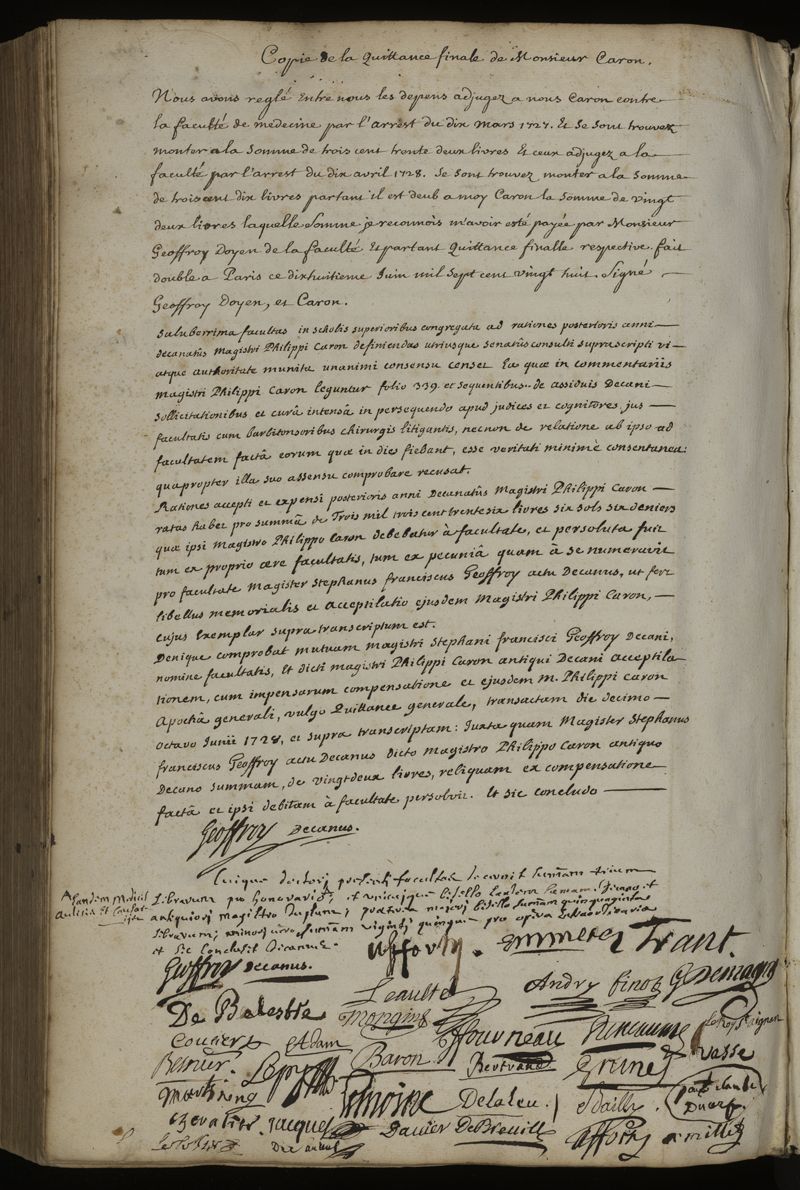 Copie de la Quittance finale de Monsieur Caron.
Nous avons reglé Entre nous les depens adjugez a nous Caron contre
la faculté de medecine par l'arrest du dix Mars 1727. Et se sont trouvez
monter a la somme de trois cent trente deux livres Et ceux adjugez a la
faculté par l'arrest du dix avril 1728. se sont trouvez monter a la somme
de trois cent dix livres partant il est deub a moy Caron la somme de vingt
deux livres laquelle somme je reconnois m'avoir esté payée par Monsieur
Geoffroy Doyen de la faculté Et partant Quittance finalle respective fait
double a Paris ce dixhuitieme Juin mil sept cent vingt huit. Signé
Geoffroy Doyen, et Caron.
Saluberrima facultas in scholis superioribus congregata ad rationes posterioris anni
decanatûs Magistri Philippi Caron definiendas utriusque senatûs consulti suprascripti vi
atque authoritate munita unanimi consensu censet Ea quæ in commentariis
Magistri Philippi Caron leguntur folio 339 et sequentibus de assiduis Decani
sollicitationibus et curâ intensâ in persequendo apud judices et cognitores, jus
facultatis cum barbitonsoribus chirurgis litigantis, necnon de relatione ab ipso ad
facultatem factâ eorum quæ in dies fiebant, esse veritati minimè consentanea:
quapropter illa suo assensu comprobare recusat.
Rationes accepti et expensi posterioris anni Decanatûs Magistri Philippi Caron
ratas habet pro summâ de Trois mil trois cent trente six livres six sols six deniers
quæ ipsi Magistro Philippo Caron debebatur à facultate, et persoluta fuit
tum ex proprio ære facultatis, tum ex pecuniâ quam à se numeravit
pro facultate Magister Stephanus franciscus Geoffroy actu Decanus, ut fert
libellus memorialis et acceptilatio ejusdem Magistri Philippi Caron,
cujus Exemplar supra transcriptum est.
Denique comprobat mutuam Magistri Stephani francisci Geoffroy Decani,
nomine facultatis, Et dicti Magistri Philippi Caron antiqui Decani acceptila
tionem, cum impensarum compensatione et ejusdem M. Philippi Caron
Apochâ generali, vulgo Quittance generale, transactam die decimo
octavo Junii 1728, et supra transcriptam: Juxta quam Magister Stephanus
franciscus Geoffroy actu Decanus dicto Magistro Philippo Caron antiquo
Decano summam, de vingt deux livres, reliquam ex compensatione
factâ et ipsi debitam à facultate persolvit. Et sic concludo
Geoffroy Decanus.
Cuique doctori præsenti facultas decrevit summam trium
librarum pro honorario, et
antiquiori magistro duplum;
librarum; minori vero summam viginti quinque pro opera extraordinaria
et sic conclusit Decanus.
Geoffroy Decanus. Emmerez
Leaulté Andry finot
De Balestre
Couvier Adam
Bernier. Baron Bertrand vasse
Lemoine Delaleu Bailly
chevalier. Jacques De Breuille